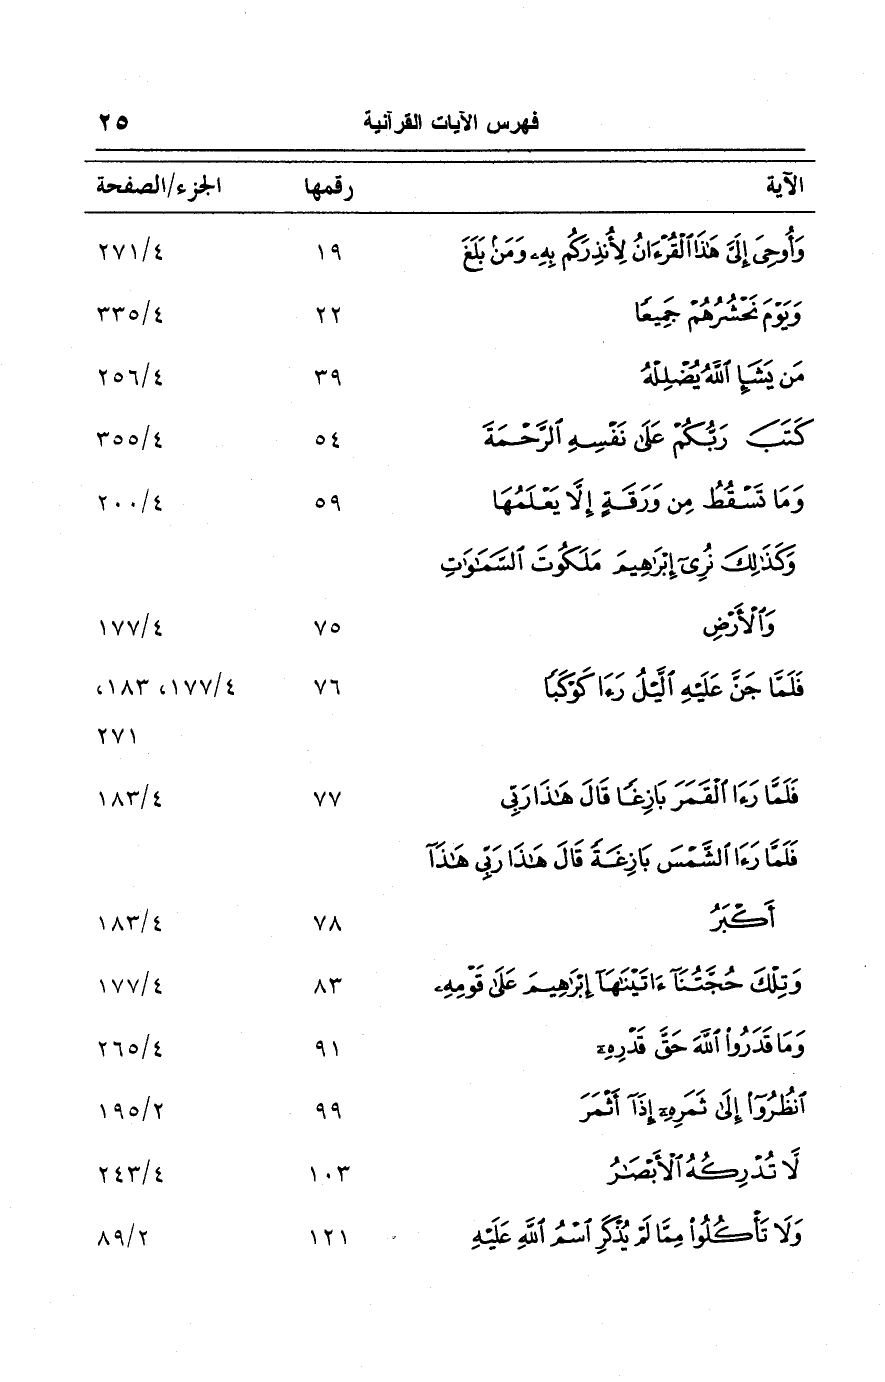 فهرس الآيات القرآنية ٢٥
الآية رقمها الجزء/الصفحة
وَأُوحِيَ إِلَيَّ هَٰذَا ٱلْقُرْءَانُ لِأُنذِرَكُم بِهِۦ وَمَنۢ بَلَغَ ١٩ ٢٧١/٤
وَيَوْمَ نَحْشُرُهُمْ جَمِيعًا ٢٢ ٣٣٥/٤
مَن يَشَإِ ٱللَّهُ يُضْلِلْهُ ٣٩ ٢٥٦/٤
كَتَبَ رَبُّكُمْ عَلَىٰ نَفْسِهِ ٱلرَّحْمَةَ ٥٤ ٣٥٥/٤
وَمَا تَسْقُطُ مِن وَرَقَةٍ إِلَّا يَعْلَمُهَا ٥٩ ٢٠٠/٤
وَكَذَٰلِكَ نُرِىٓ إِبْرَٰهِيمَ مَلَكُوتَ ٱلسَّمَٰوَٰتِ
وَٱلْأَرْضِ ٧٥ ١٧٧/٤
فَلَمَّا جَنَّ عَلَيْهِ ٱلَّيْلُ رَءَا كَوْكَبًا ٧٦ ١٧٧/٤، ١٨٣،
٢٧١
فَلَمَّا رَءَا ٱلْقَمَرَ بَازِغًا قَالَ هَٰذَا رَبِّي ٧٧ ١٨٣/٤
فَلَمَّا رَءَا ٱلشَّمْسَ بَازِغَةً قَالَ هَٰذَا رَبِّي هَٰذَآ
أَكْبَرُ ٧٨ ١٨٣/٤
وَتِلْكَ حُجَّتُنَآ ءَاتَيْنَٰهَآ إِبْرَٰهِيمَ عَلَىٰ قَوْمِهِۦ ٨٣ ١٧٧/٤
وَمَا قَدَرُوا۟ ٱللَّهَ حَقَّ قَدْرِهِۦٓ ٩١ ٢٦٥/٤
ٱنظُرُوٓا۟ إِلَىٰ ثَمَرِهِۦٓ إِذَآ أَثْمَرَ ٩٩ ١٩٥/٢
لَّا تُدْرِكُهُ ٱلْأَبْصَٰرُ ١٠٣ ٢٤٣/٤
وَلَا تَأْكُلُوا۟ مِمَّا لَمْ يُذْكَرِ ٱسْمُ ٱللَّهِ عَلَيْهِ ١٢١ ٨٩/٢